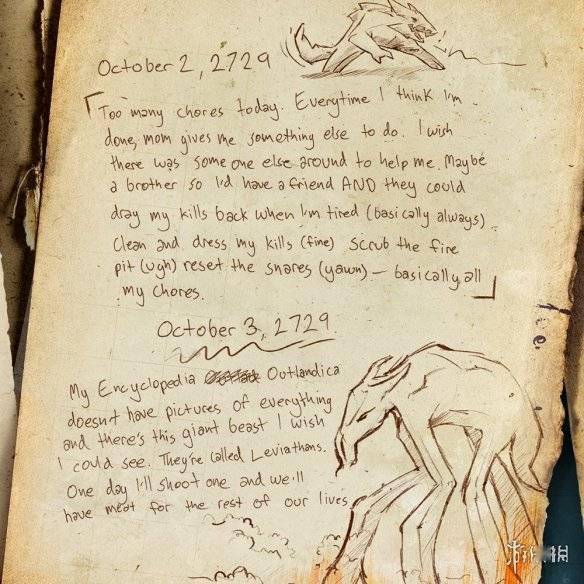 October 2, 2729
「Too many chores today. Everytime I think I'm
done, mom gives me something else to do. I wish
there was some one else around to help me. Maybe
a brother so I'd have a friend AND they could
drag my kills back when I'm tired (basically always)
Clean and dress my kills (fine) Scrub the fire
pit (ugh) reset the snares (yawn) – basically all
my chores.」
October 3, 2729.
My Encyclopedia Outlandica
doesn't have pictures of everything
and there's this giant beast I wish
I could see. They're called Leviathans.
One day I'll shoot one and we'll
have meat for the rest of our lives